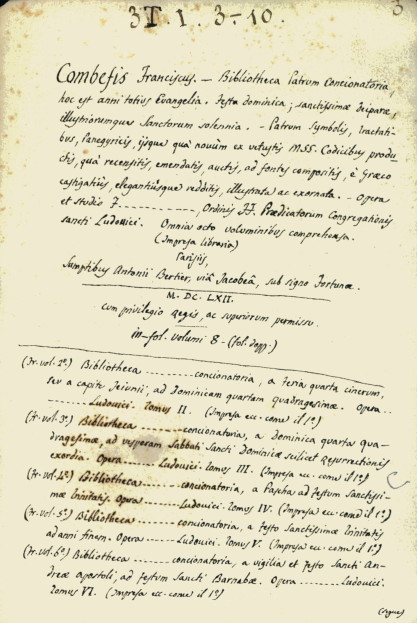 3T 1. 3-10.
3
Combefis Franciscus. — Bibliotheca Patrum Concionatoria,
hoc est anni totius Evangelia. Festa dominica; sanctissimæ deiparæ,
illustriorumque Sanctorum solennia. — Patrum Symbolis, tractati-
bus, Panegyricis, ijsque quà novùm ex vetustis MSS. Codicibus produ-
ctis, quà recensitis, emendatis, auctis, ad fontes compositis, è Græco
castigatiùs, elegantiùsque redditis, illustrata ac exornata. — Opera
et studio F. ............, Ordinis FF. Prædicatorum Congregationis
sancti Ludovici. Omnia octo voluminibus comprehensa.
(Impresa libraria)
Parisiis,
Sumptibus Antonii Bertier, viâ Jacobeâ, sub signo Fortunæ.
M. DC. LXII.
cum privilegio Regis, ac superiorum permissu.
in-fol. volumi 8 - (fol. dopp.)
(Fr. vol. 2º) Bibliotheca ............ concionatoria, a feria quarta cinerum,
seu a capite Jeiunii, ad Dominicam quartam quadragesimæ. Opera ...
........ Ludovici. Tomus II. (Impresa ecc. come il 1º)
(Fr. vol. 3º) Bibliotheca ............ concionatoria, a dominica quarta qua-
dragesimæ, ad vesperam Sabbati Sancti Dominicæ scilicet Resurrectionis
exordia. Opera ........ Ludovici. Tomus III. (Impresa ecc. come il 1º)
(Fr. vol. 4º) Bibliotheca ............ concionatoria, a Pascha ad festum Sanctissi-
mæ Trinitatis. Opera ........ Ludovici. Tomus IV. (Impresa ecc. come il 1º)
(Fr. vol. 5º) Bibliotheca ............ concionatoria, a festo Sanctissimæ Trinitatis
ad anni finem. Opera ........ Ludovici. Tomus V. (Impresa ecc. come il 1º)
(Fr. vol. 6º) Bibliotheca ............ concionatoria, a vigilia et festo Sancti An-
dreæ Apostoli, ad festum Sancti Barnabæ. Opera ........ Ludovici.
Tomus VI. (Impresa ecc. come il 1º)
(segue)